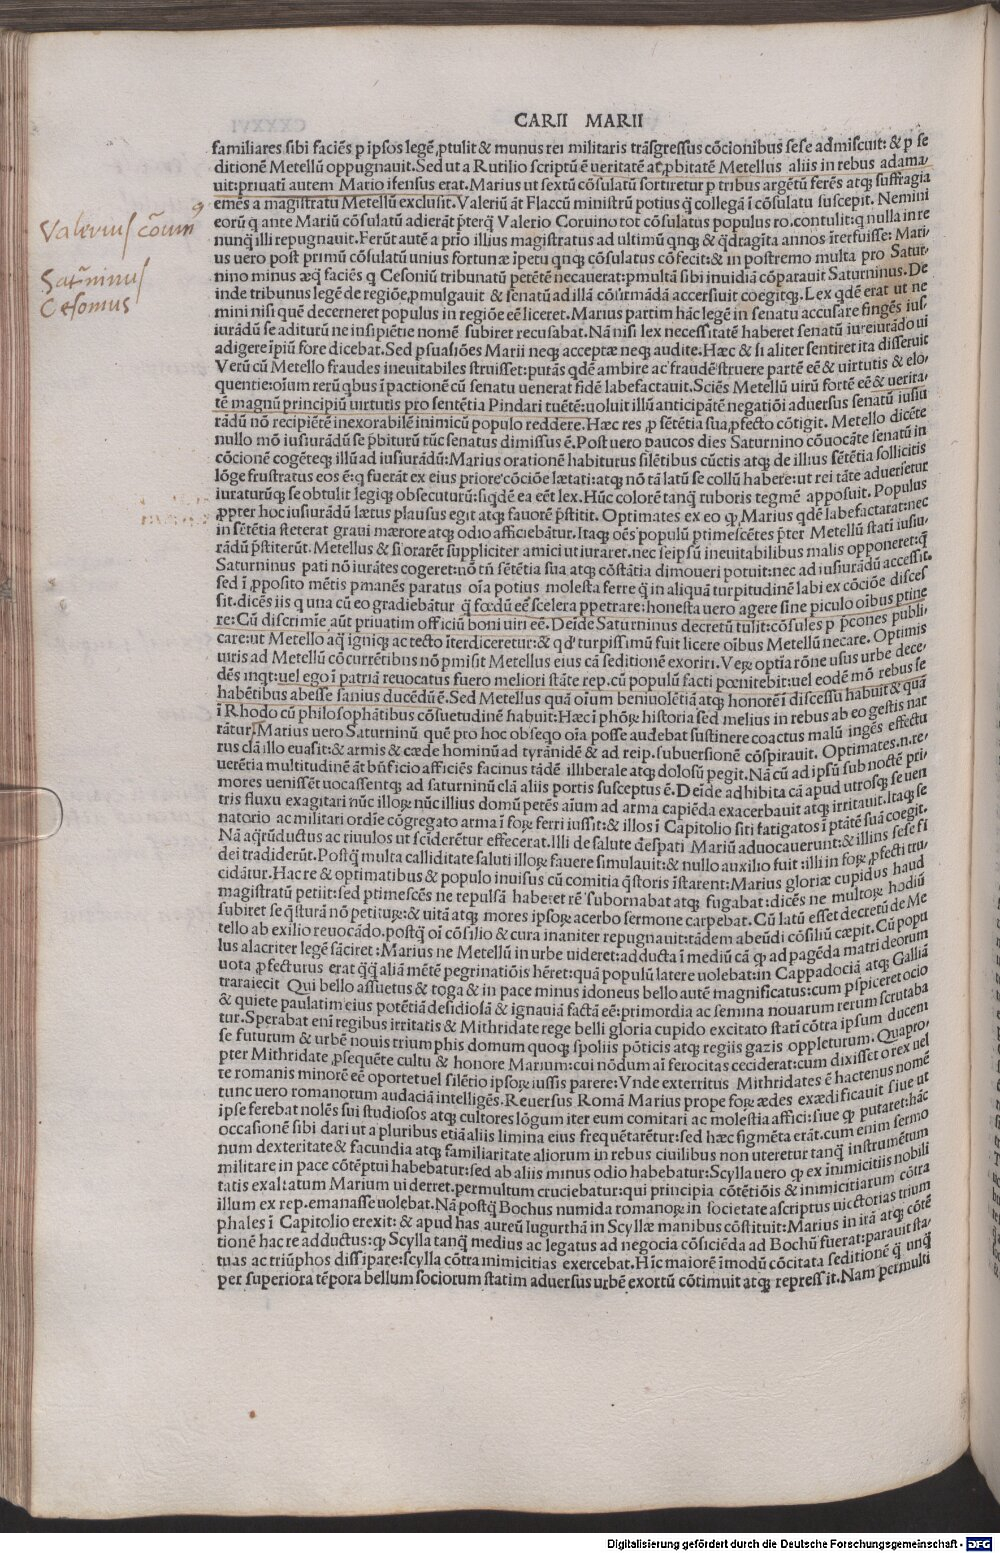 CARII MARII
familiares sibi faciēs p ip̄sos legē ꝓtulit & munus rei militaris trāsgressus cōcionibus sese admiscuit: & p se
ditionē Metellū oppugnauit. Sed ut a Rutilio scriptū ē ueritatē atꝫ ꝓbitatē Metellus aliis in rebus adama
uit: priuati autem Mario īfensus erat. Marius ut sextū cōsulatū sortiretur p tribus argētū ferēs atqꝫ suffragia
emēs a magistratu Metellū exclusit. Valeriū āt Flaccū ministrū potius q̄ collegā ī cōsulatu suscepit. Nemini
eorū q ante Mariū cōsulatū adierāt p̄terq̄ Valerio Coruino tot cōsulatus populus ro. contulit: q nulla in re
nunq̄ illi repugnauit. Ferūt autē a prīo illius magistratus ad ultimū qnqꝫ & q̄dragīta annos īterfuisse: Mari
us uero post primū cōsulatū unius fortunæ īpetu qnqꝫ cōsulatus cōfecit: & in postremo multa pro Satur
nino minus æq̄ faciēs q Cesoniū tribunatū petētē necauerat: p multā sibi inuidiā cōparauit Saturninus. De
inde tribunus legē de regiōe ꝓmulgauit & senatū ad illā cōfirmādā accersiuit coegitqꝫ. Lex qdē erat ut ne
mini nisi quē decerneret populus in regiōe eē liceret. Marius partim hāc legē in senatu accusare fingēs ius
iurādū se aditurū ne insipiētie nomē subiret recusabat. Nā nisi lex necessitatē haberet senatū iureiurādo ui
adigere īpiū fore dicebat. Sed p suasiōes Marii neqꝫ acceptæ neqꝫ audite. Hæc & si aliter sentiret ita disseruit
Verū cū Metello fraudes ineuitabiles struisset: putās qdē ambire ac fraudē struere partē eē & uirtutis & elo
quentie: oīum rerū qbus ī pactionē cū senatu uenerat fidē labefactauit. Sciēs Metellū uirū fortē eē & uerita
tē magnū principiū uirtutis pro sentētia Pindari tuētē: uoluit illū anticipātē negatiōi aduersus senatū iusiu
rādū nō recipiētē inexorabilē inimicū populo reddere. Hæc res ꝓ sētētia sua ꝓfecto cōtigit. Metello dicēte
nullo mō iusiurādū se p̄biturū tūc senatus dimissus ē. Post uero paucos dies Saturnino cōuocāte senatū in
cōcionē cogēteqꝫ illū ad iusiurādū: Marius orationē habiturus silētibus cūctis atqꝫ de illius sētētia sollicitis
lōge frustratus eos ē: q fuerāt ex eius priore cōciōe lætati: atqꝫ nō tā latū se collū habere: ut rei tāte aduersetur
iuraturūqꝫ se obtulit legiqꝫ obsecuturū: siqdē ea eēt lex. Hūc colorē tanq̄ ruboris tegmē apposuit. Populus
ꝓpter hoc iusiurādū lætus plausus egit atqꝫ fauorē p̄stitit. Optimates ex eo qꝫ Marius qdē labefactarat: nec
in sētētia steterat graui mærore atqꝫ odio afficiebātur. Itaqꝫ oēs populū ptimescētes p̄ter Metellū stati iusiu
rādū p̄stiterūt. Metellus & si orarēt suppliciter amici ut iuraret. nec seipsū ineuitabilibus malis opponeret: q̄
Saturninus pati nō iurātes cogeret: nō tn̄ sētētia sua atqꝫ cōstātia dimoueri potuit: nec ad iusiurādū accessit.
sed ī ꝓposito mētis pmanēs paratus oīa potius molesta ferre q̄ in aliquā turpitudinē labi ex cōciōe disces
sit. dicēs iis q una cū eo gradiebātur q̄ fœdū eē scelera ppetrare: honesta uero agere sine piculo oībus ptine
re: Cū discrimīe aūt priuatim officiū boni uiri eē. Deīde Saturninus decretū tulit: cōsules p p̄cones publi
care: ut Metello aq̄ igniqꝫ ac tecto īterdiceretur: & qd' turpissimū fuit licere oībus Metellū necare. Optimis
uiris ad Metellū cōcurrētibus nō pmisit Metellus eius cā seditionē exoriri. Veꝝ optīa rōne usus urbe dece
dēs inqt: uel ego ī patriā reuocatus fuero meliori stāte rep. cū populū facti pœnitebit: uel eodē mō rebus se
habētibus abesse sanius ducēdū ē. Sed Metellus quā oīum beniuolētiā atqꝫ honorē ī discessu habuit & quā
ī Rhodo cū philosophātibus cōsuetudinē habuit: Hæc ī phōꝝ historia sed melius in rebus ab eo gestis nar
rātur. Marius uero Saturninū quē pro hoc obseqo oīa posse audebat sustinere coactus malū ingēs effectu
rus clā illo euasit: & armis & cæde hominū ad tyrānidē & ad reip. subuersionē cōspirauit. Optimates .n. re
uerētia multitudinē āt bn̄ficio afficiēs facinus tādē illiberale atqꝫ dolosū pegit. Nā cū ad ipsū sub noctē pri
mores uenissēt uocassentqꝫ ad saturninū clā aliis portis susceptus ē. Deīde adhibita cā apud utrosqꝫ se uen
tris fluxu exagitari nūc illoꝝ nūc illius domū petēs aīum ad arma capiēda exacerbauit atqꝫ irritauit. Itaqꝫ se
natorio ac militari ordīe cōgregato arma ī foꝝ ferri iussit: & illos ī Capitolio siti fatigatos ī ptātē suā coegit.
Nā aq̄rūductus ac riuulos ut sciderētur effecerat. Illi de salute d̄espati Mariū aduocauerunt: & illius sese fi
dei tradiderūt. Postq̄ multa calliditate saluti illoꝝ fauere simulauit: & nullo auxilio fuit: illi in foꝝ ꝓfecti tru
cidātur. Hac re & optimatibus & populo inuisus cū comitia q̄storis īstarent: Marius gloriæ cupidus haud
magistratū petiit: sed ptimescēs ne repulsā haberet rē subornabat atqꝫ fugabat: dicēs ne multoꝝ hodiū
subiret se q̄sturā nō petituꝝ: & uitā atqꝫ mores ipsoꝝ acerbo sermone carpebat. Cū latū esset decretū de Me
tello ab exilio reuocādo. postq̄ oī cōsilio & cura inaniter repugnauit: tādem abeūdi cōsiliū cæpit. Cū popu
lus alacriter legē sāciret: Marius ne Metellū in urbe uideret: adducta ī mediū cā qꝫ ad pagēda matri deorum
uota ꝓfecturus erat q̄q̄ aliā mētē pegrinatiōis hēret: quā populū latere uolebat: in Cappadociā atqꝫ Galliā
traraiecit Qui bello assuetus & toga & in pace minus idoneus bello autē magnificatus: cum pspiceret ocio
& quiete paulatim eius potētiā desidiosā & ignauiā factā eē: primordia ac semina nouarum rerum scrutaba
tur. Sperabat enī regibus irritatis & Mithridate rege belli gloria cupido excitato statī cōtra ipsum ducem
se futurum & urbē nouis triumphis domum quoqꝫ spoliis pōticis atqꝫ regiis gazis oppleturum. Quapro
pter Mithridate ꝓsequēte cultu & honore Marium: cui nōdum aī ferocitas ceciderat: cum dixisset o rex uel
te romanis minorē eē oportet uel silētio ipsoꝝ iussis parere: Vnde exterritus Mithridates ē hactenus nomē
tunc uero romanorum audaciā intelligēs. Reuersus Romā Marius prope foꝝ ædes exædificauit siue ut
ipse ferebat nolēs sui studiosos atqꝫ cultores lōgum iter eum comitari ac molestia affici: siue qꝫ putaret: hāc
occasionē sibi dari ut a pluribus etiā aliis limina eius frequētarētur: sed hæc figmēta erāt. cum enim sermo
num dexteritate & facundia atqꝫ familiaritate aliorum in rebus ciuilibus non uteretur tanq̄ instrumētum
militare in pace cōtēptui habebatur: sed ab aliis minus odio habebatur: Scylla uero qꝫ ex inimicitiis nobili
tatis exaltatum Marium uiderret. permultum cruciebatur: qui principia cōtētiōis & inimicitiarum cōtra
illum ex rep. emanasse uolebat. Nā postq̄ Bochus numida romanoꝝ in societate ascriptus uictorias trium
phales ī Capitolio erexit: & apud has aureū Iugurthā in Scyllæ manibus cōstituit: Marius in irā atqꝫ cōtē
tionē hac re adductus: qꝫ Scylla tanq̄ medius ac legatus ad negocia cōficiēda ad Bochū fuerat: parauit sta
tuas ac triūphos dissipare: scylla cōtra inimicitias exercebat. Hīc maiorē īmodū cōcitata seditionē q̄ unq̄
per superiora tēpora bellum sociorum statim aduersus urbē exortū cōtimuit atqꝫ repressit. Nam permulti
Valerius coruin9
Sat̄ninus
Cesonius
Digitalisierung gefördert durch die Deutsche Forschungsgemeinschaft - DFG